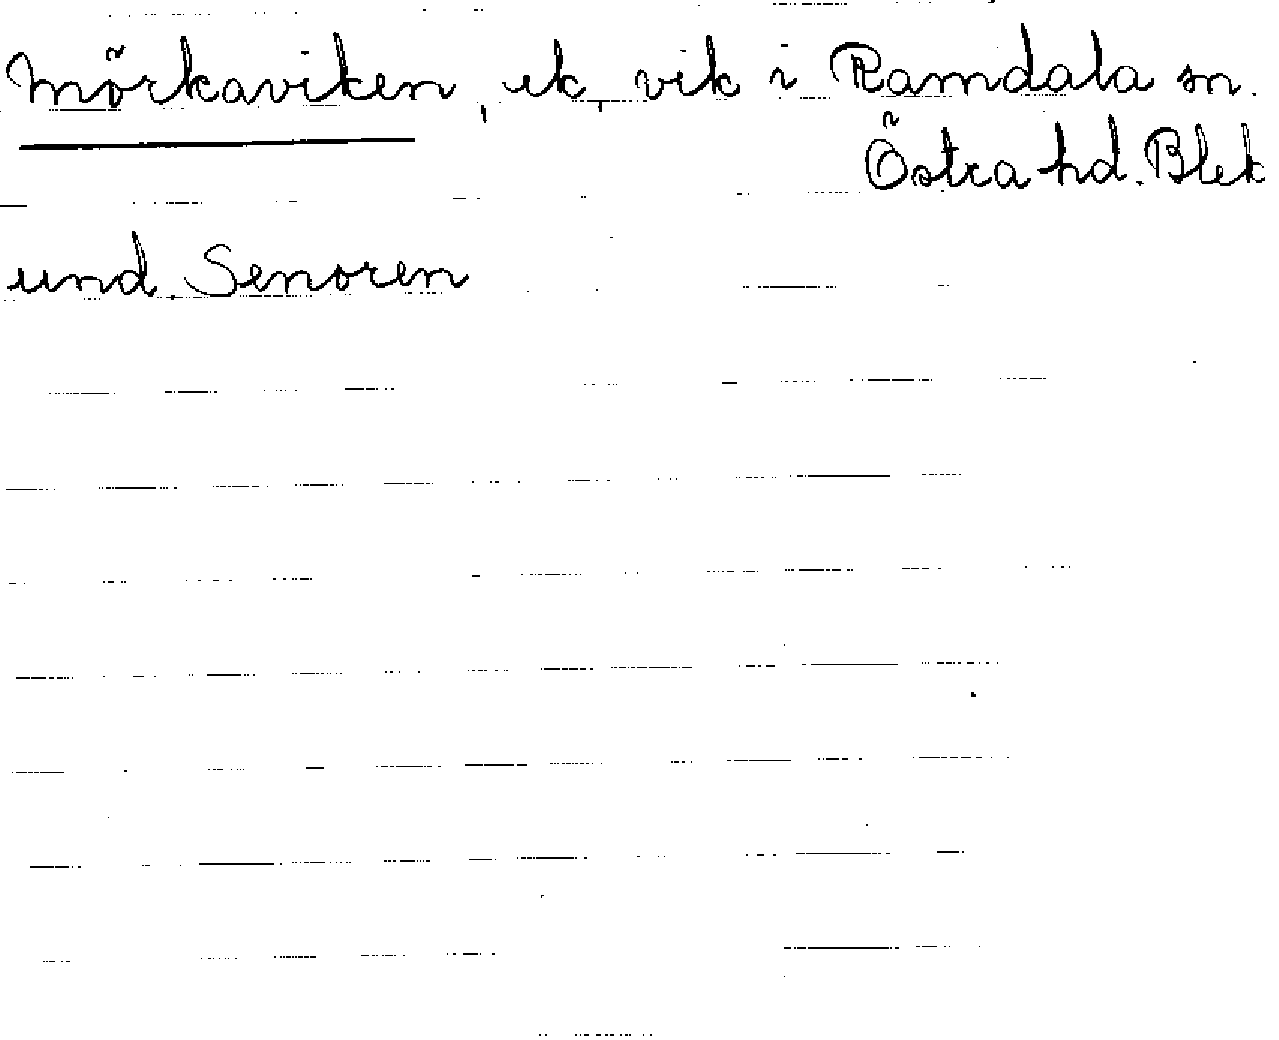 Mörkaviken, ek, vik i Ramdala sn.
Östra hd. Blek
und. Senoren